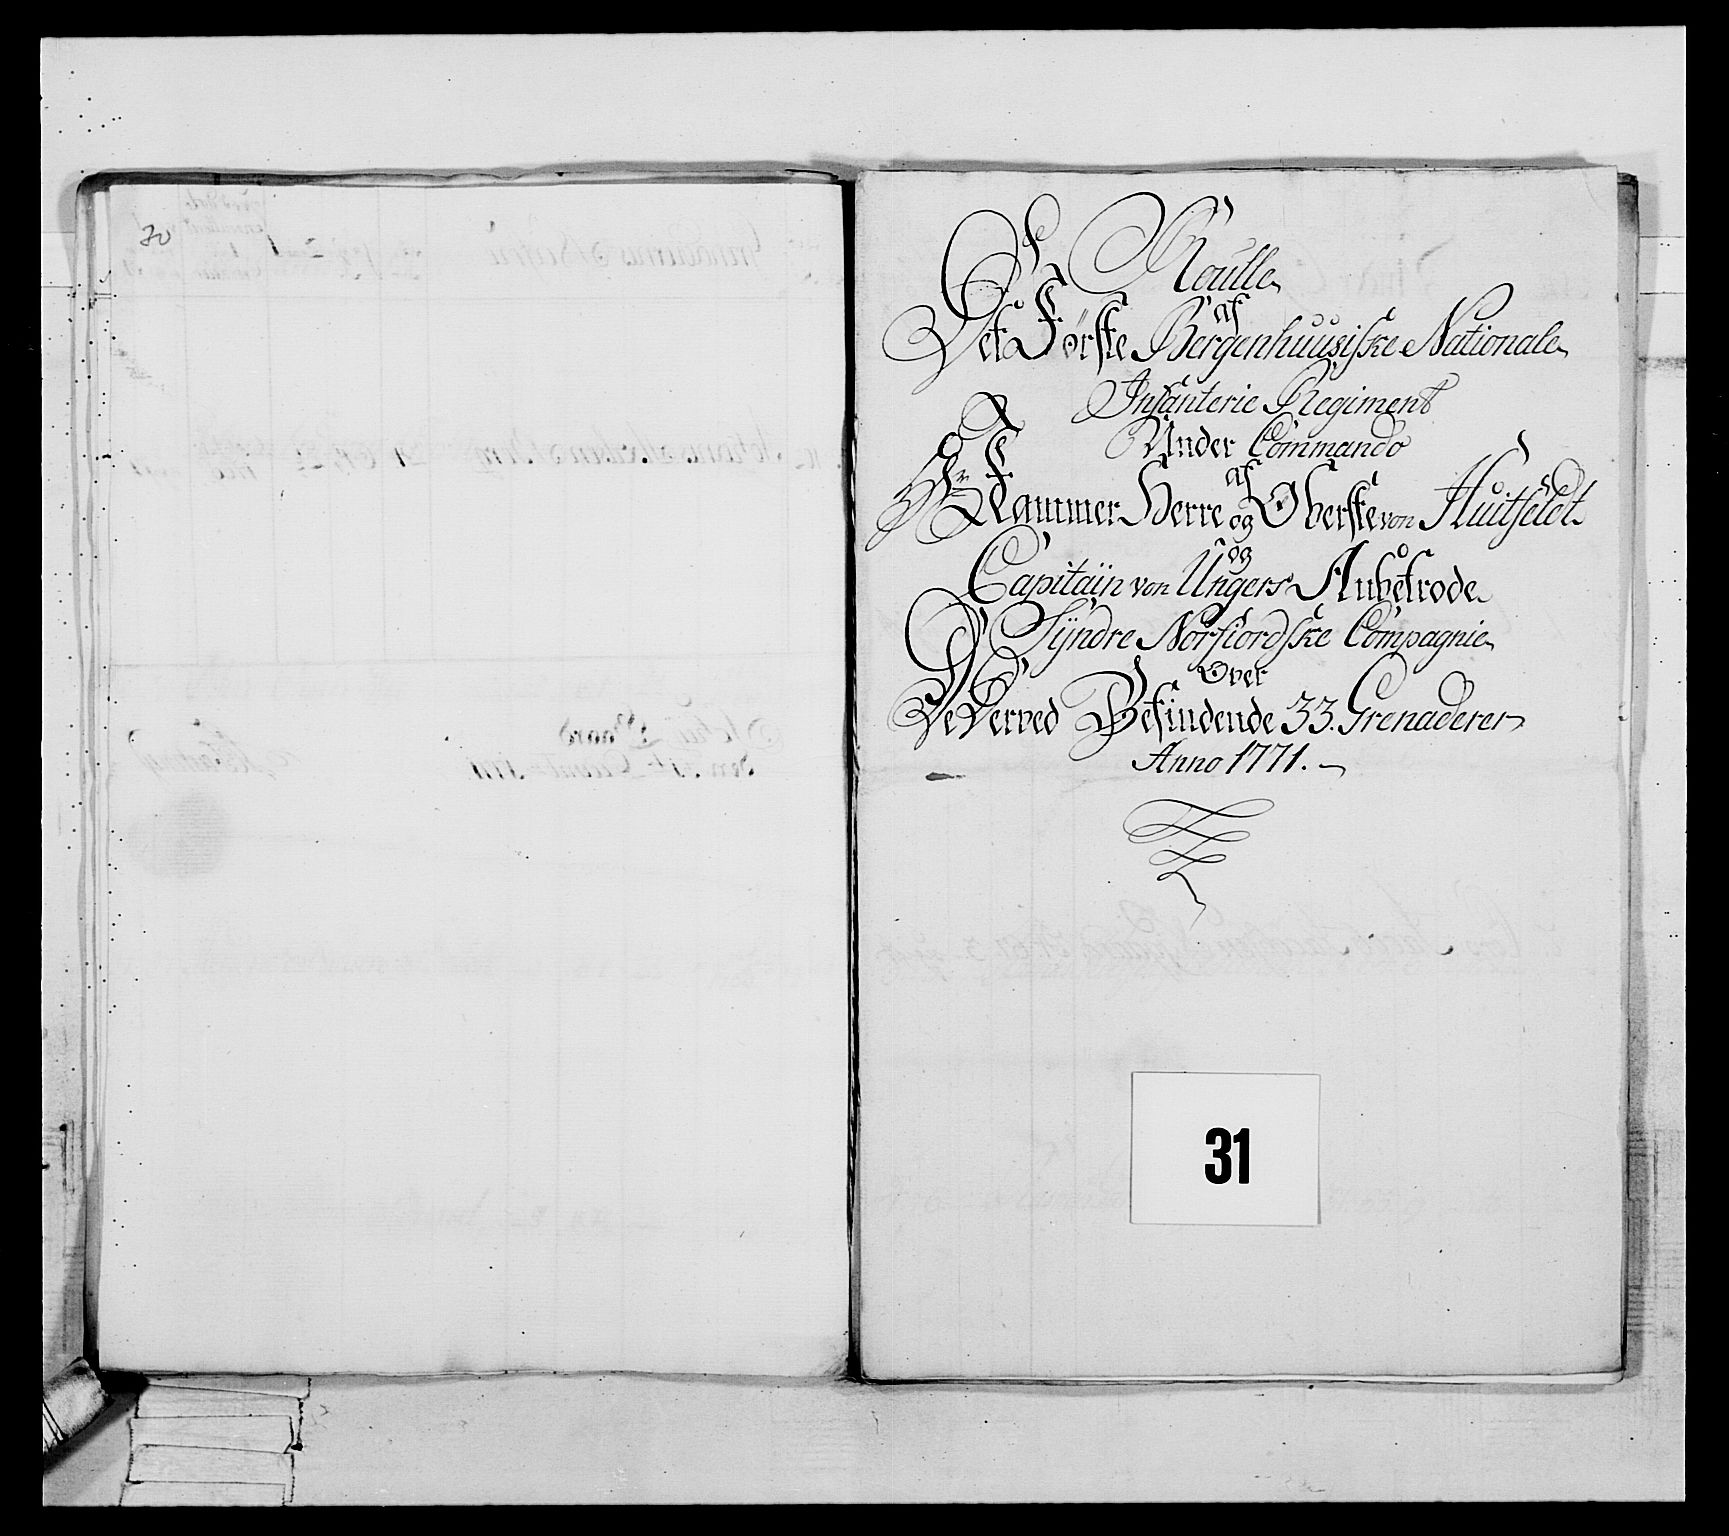 30
Roulle
af
Det Første Bergenhuusiske Nationale
Infanterie Regiment
Under Commando
af
Hr Kammer Herre og Oberste von Huitfeldt
og
Capitaijn von Ungers Anbetrode
Syndre Norfiordske Compagnie
Over
De Derved Befindende 33. Grenaderer
Anno 1771.
31